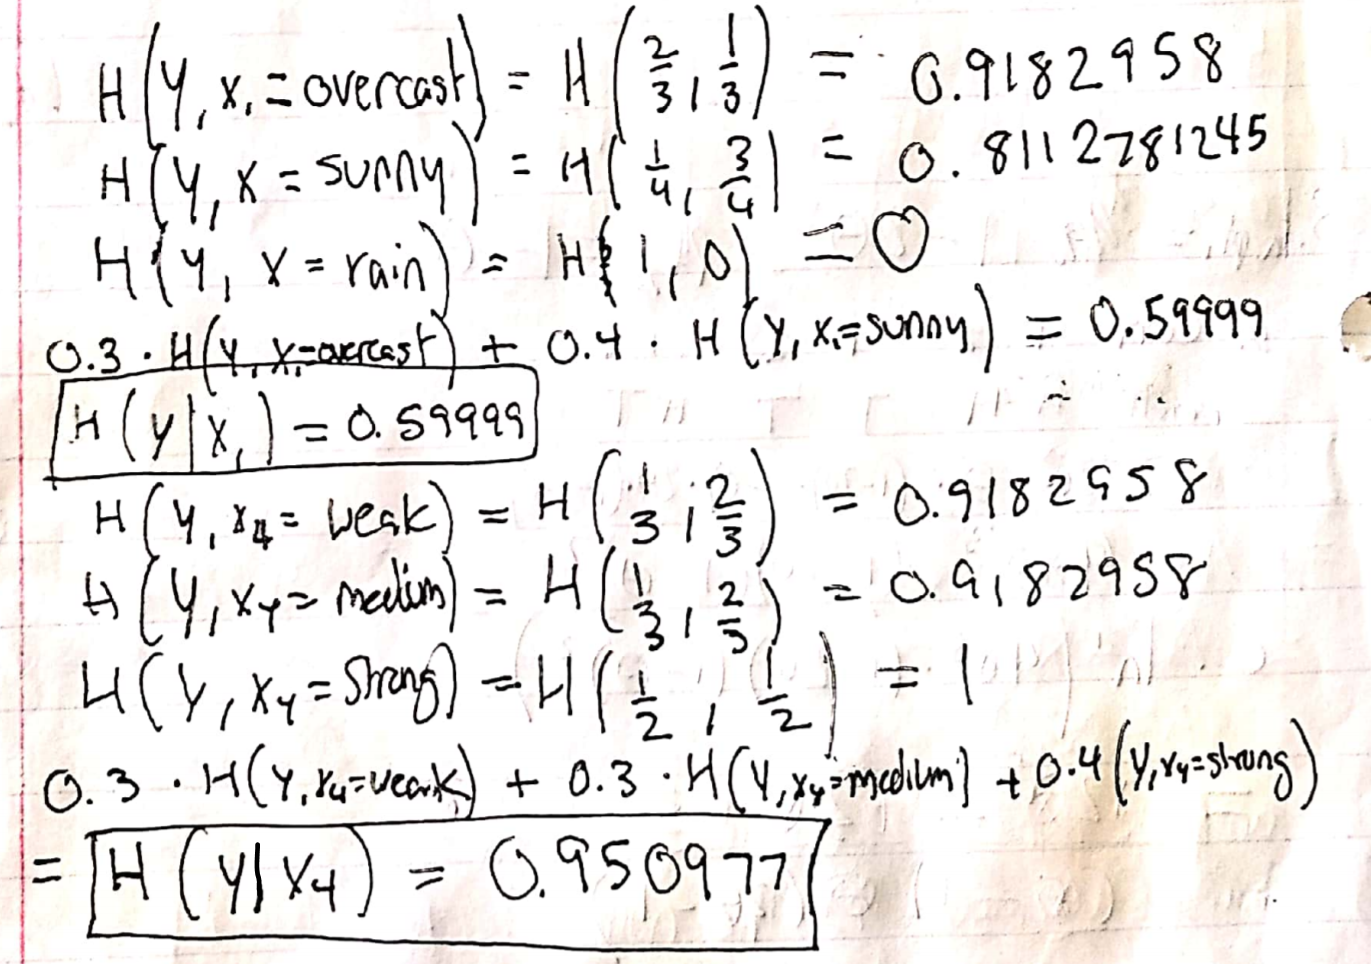 H(Y, X₁ = overcast) = H(2/3, 1/3) = 0.9182958
H(Y, X = sunny) = H(1/4, 3/4) = 0.8112781245
H(Y, X = rain) = H(1, 0) = 0
0.3 · H(Y, X₁=overcast) + 0.4 · H(Y, X₁=sunny) = 0.59999
H(Y|X₁) = 0.59999
H(Y, X₄ = weak) = H(1/3, 2/3) = 0.9182958
H(Y, X₄ = medium) = H(1/3, 2/3) = 0.9182958
H(Y, X₄ = Strong) = H(1/2, 1/2) = 1
0.3 · H(Y, X₄=weak) + 0.3 · H(Y, X₄=medium) + 0.4(Y, X₄=strong)
= H(Y|X₄) = 0.950977